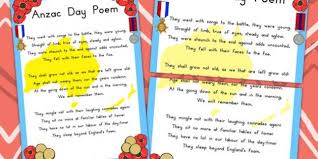 Anzac Day Poem
They went with songs to the battle, they were young.
Straight of limb, true of eyes, steady and aglow.
They were staunch to the end against odds uncounted,
They fell with their faces to the foe.
They shall grow not old, as we that are left grow old.
Age shall not weary them, nor the years condemn.
At the going down of the sun and in the morning,
We will remember them.
They mingle not with their laughing comrades again
They sit no more at familiar tables of home
They have no lot in our labour of the daytime
They sleep beyond England's foam.
Day Poem
They went with songs to the battle, they were young.
Straight of limb, true of eyes, steady and aglow.
They were staunch to the end against odds uncounted,
They fell with their faces to the foe.
They shall grow not old, as we that are left grow old.
Age shall not weary them, nor the years condemn.
At the going down of the sun and in the morning,
We will remember them.
They mingle not with their laughing comrades again
They sit no more at familiar tables of home
They have no lot in our labour of the daytime
They sleep beyond England's foam.